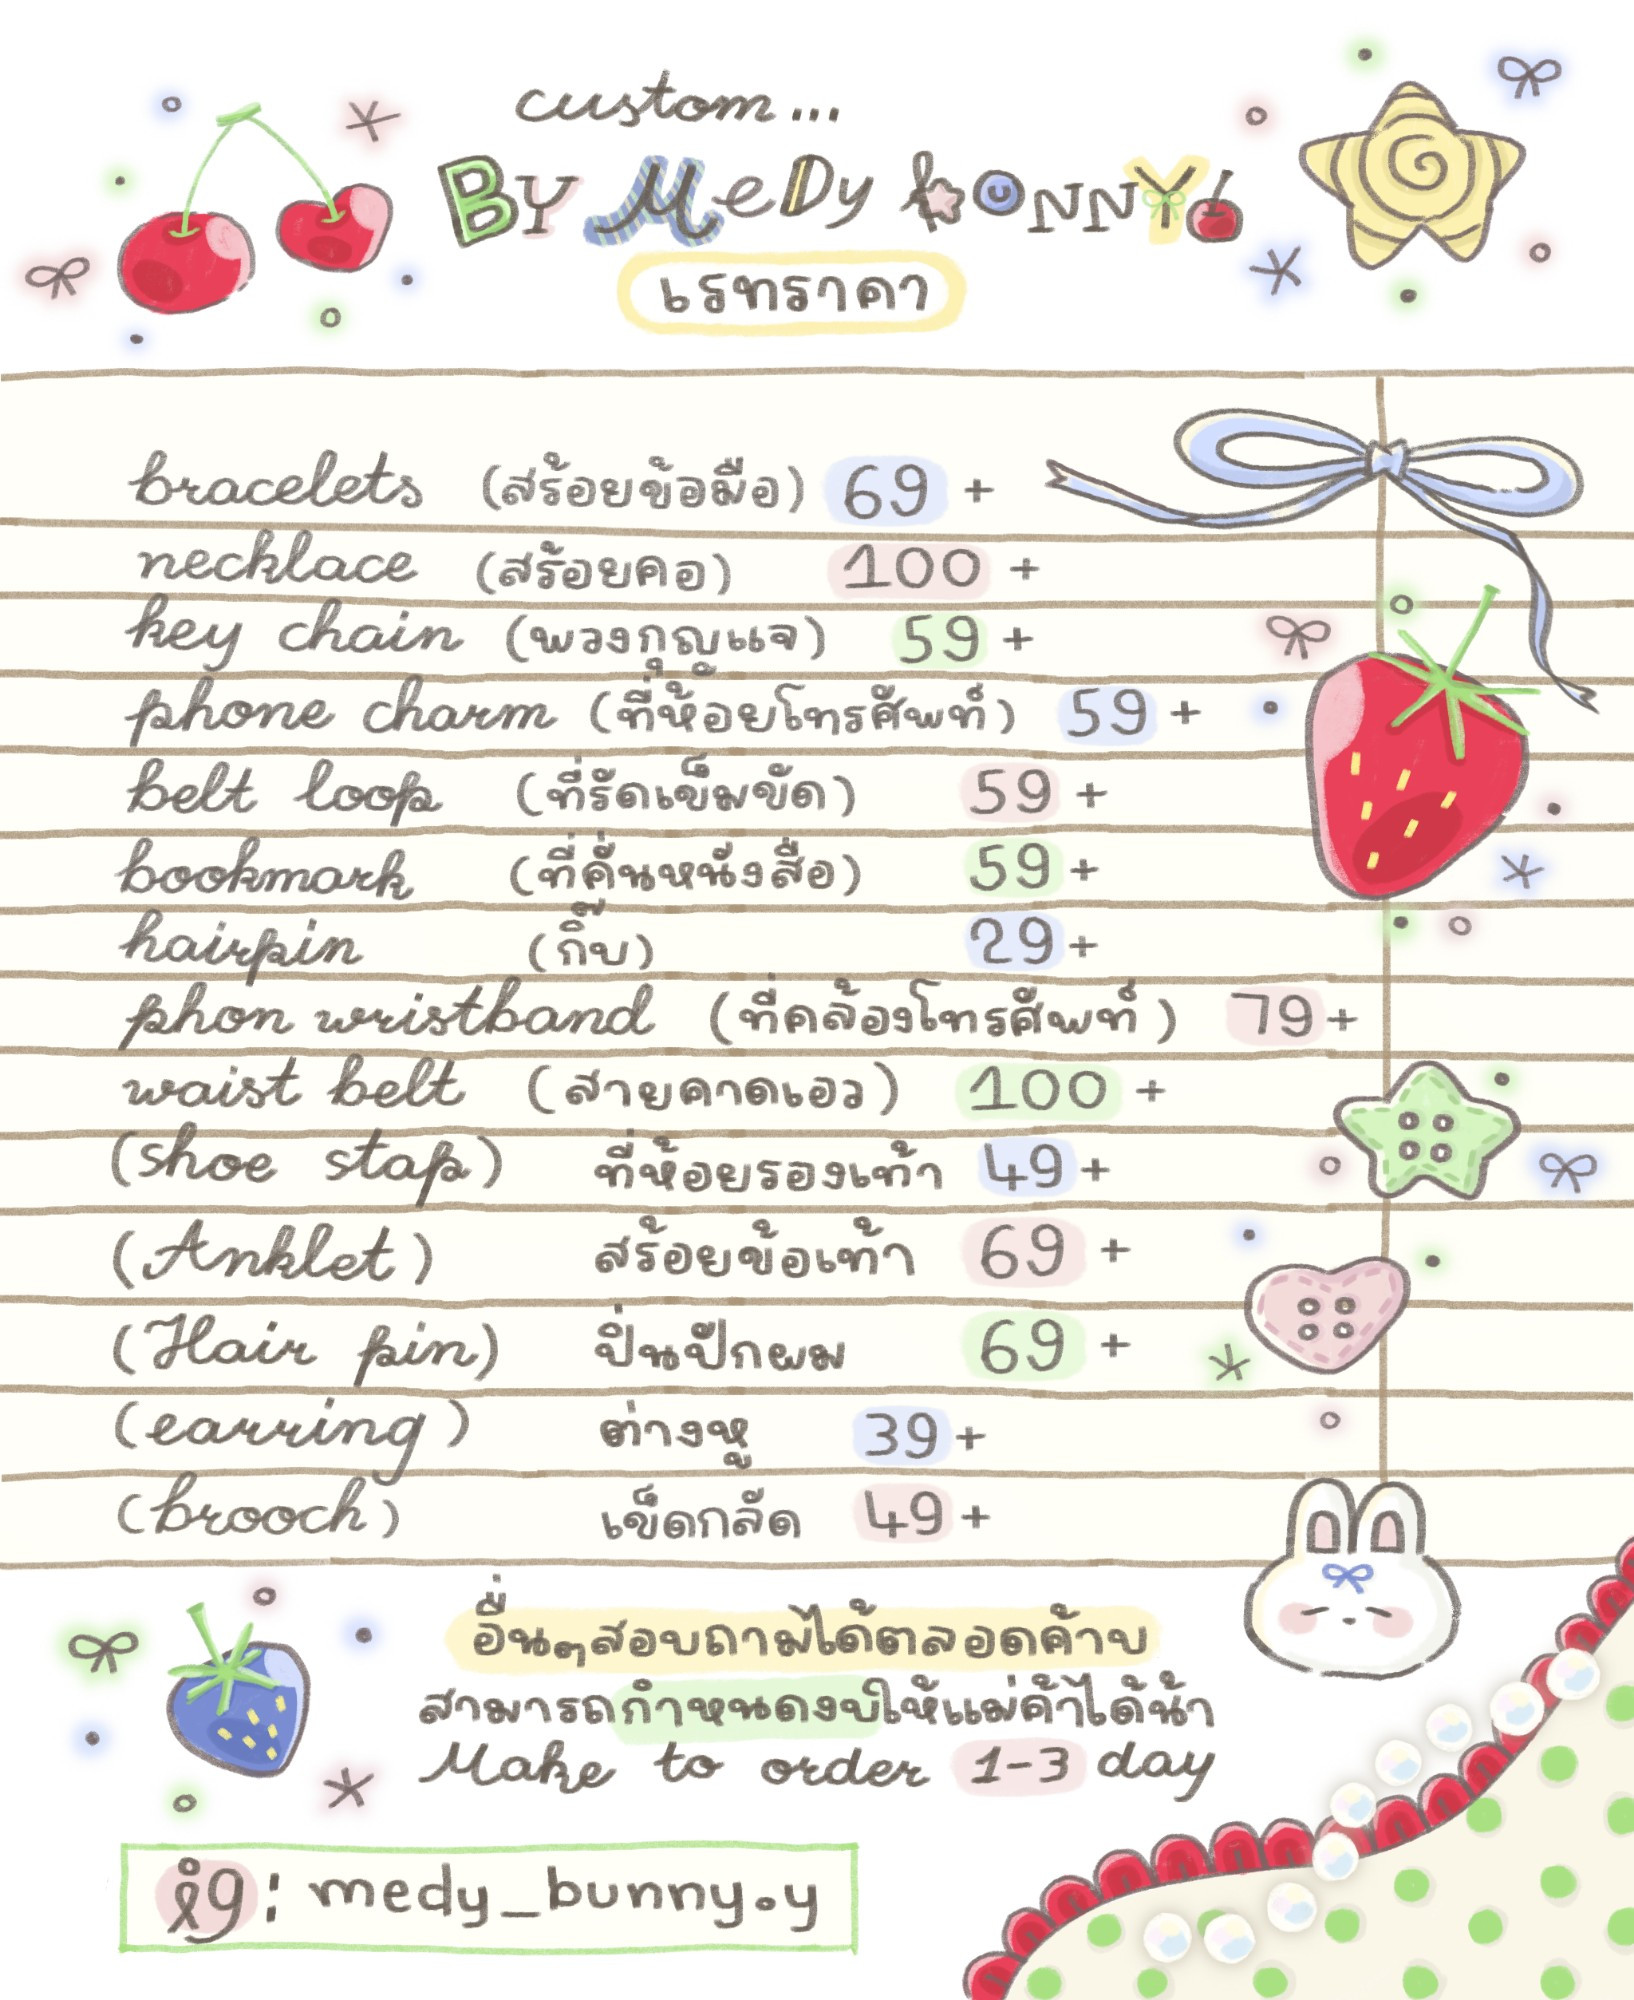 custom...
BY MeDy bunny
เรทราคา
bracelets (สร้อยข้อมือ) 69 +
necklace (สร้อยคอ) 100 +
key chain (พวงกุญแจ) 59 +
phone charm (ที่ห้อยโทรศัพท์) 59 +
belt loop (ที่รัดเข็มขัด) 59 +
bookmark (ที่คั่นหนังสือ) 59 +
hairpin (กิ๊บ) 29 +
phon wristband (ที่คล้องโทรศัพท์) 79 +
waist belt (สายคาดเอว) 100 +
(shoe stap) ที่ห้อยรองเท้า 49 +
(Anklet) สร้อยข้อเท้า 69 +
(Hair pin) ปิ่นปักผม 69 +
(earring) ต่างหู 39 +
(brooch) เข็ดกลัด 49 +
อื่นๆสอบถามได้ตลอดค้าบ
สามารถกำหนดงบให้แม่ค้าได้น้า
Make to order 1-3 day
ig: medy_bunny.y